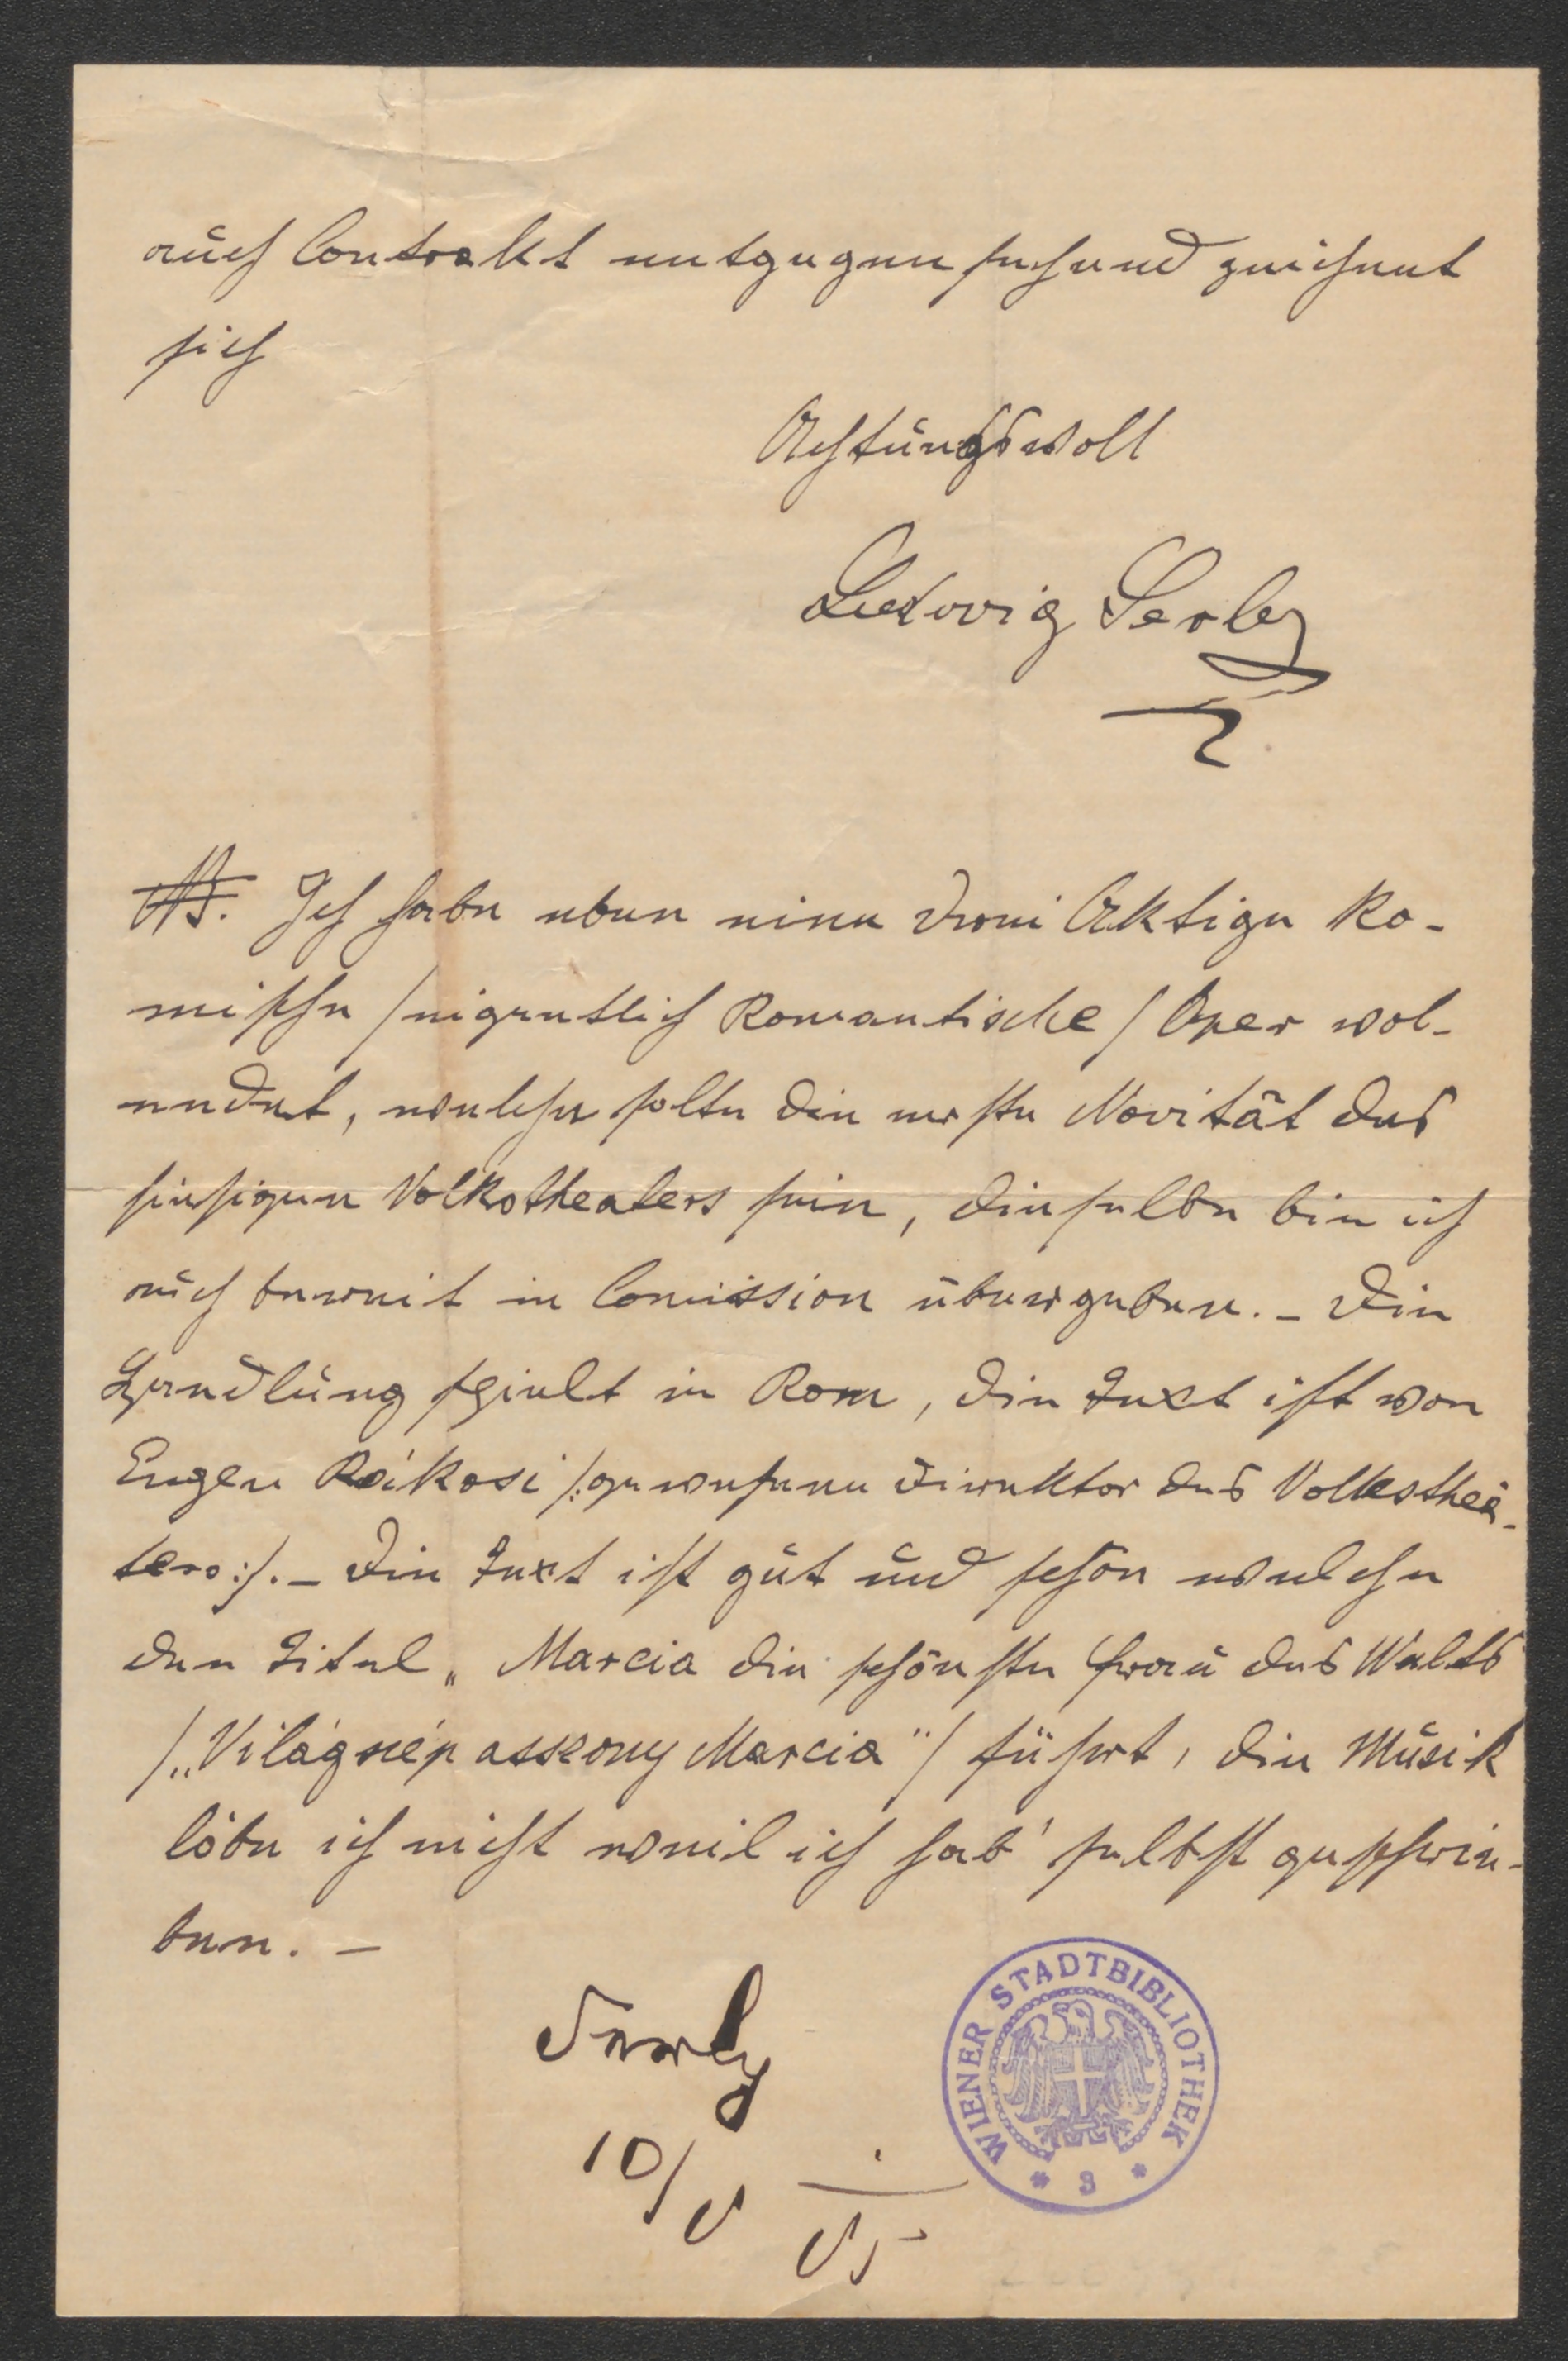 auch Contrakt entgegen sehend zeichnet
sich
Achtungsvoll
Ludwig Serly
NB. Ich habe eben eine drei Aktige ko-
mische /eigentlich Romantische/ Oper vol-
endet, welche solte die erste Novität des
hiesigen Volkstheaters sein, dieselbe bin ich
auch bereit in Comission übergeben. – Die
Handlung spielt in Rom, die Text ist von
Eugen Rákosi /: gewesene Direktor des Volksthea-
ters :/. – Die Text ist gut und schön welche
den Titel „Marcia die schönste Frau des Welts
/„Világszép asszony Marcia"/ führt, die Musik
lobe ich nicht weil ich hab' selbst geschrie-
ben. –
Serly
10/
WIENER STADTBIBLIOTHEK
* 3 *